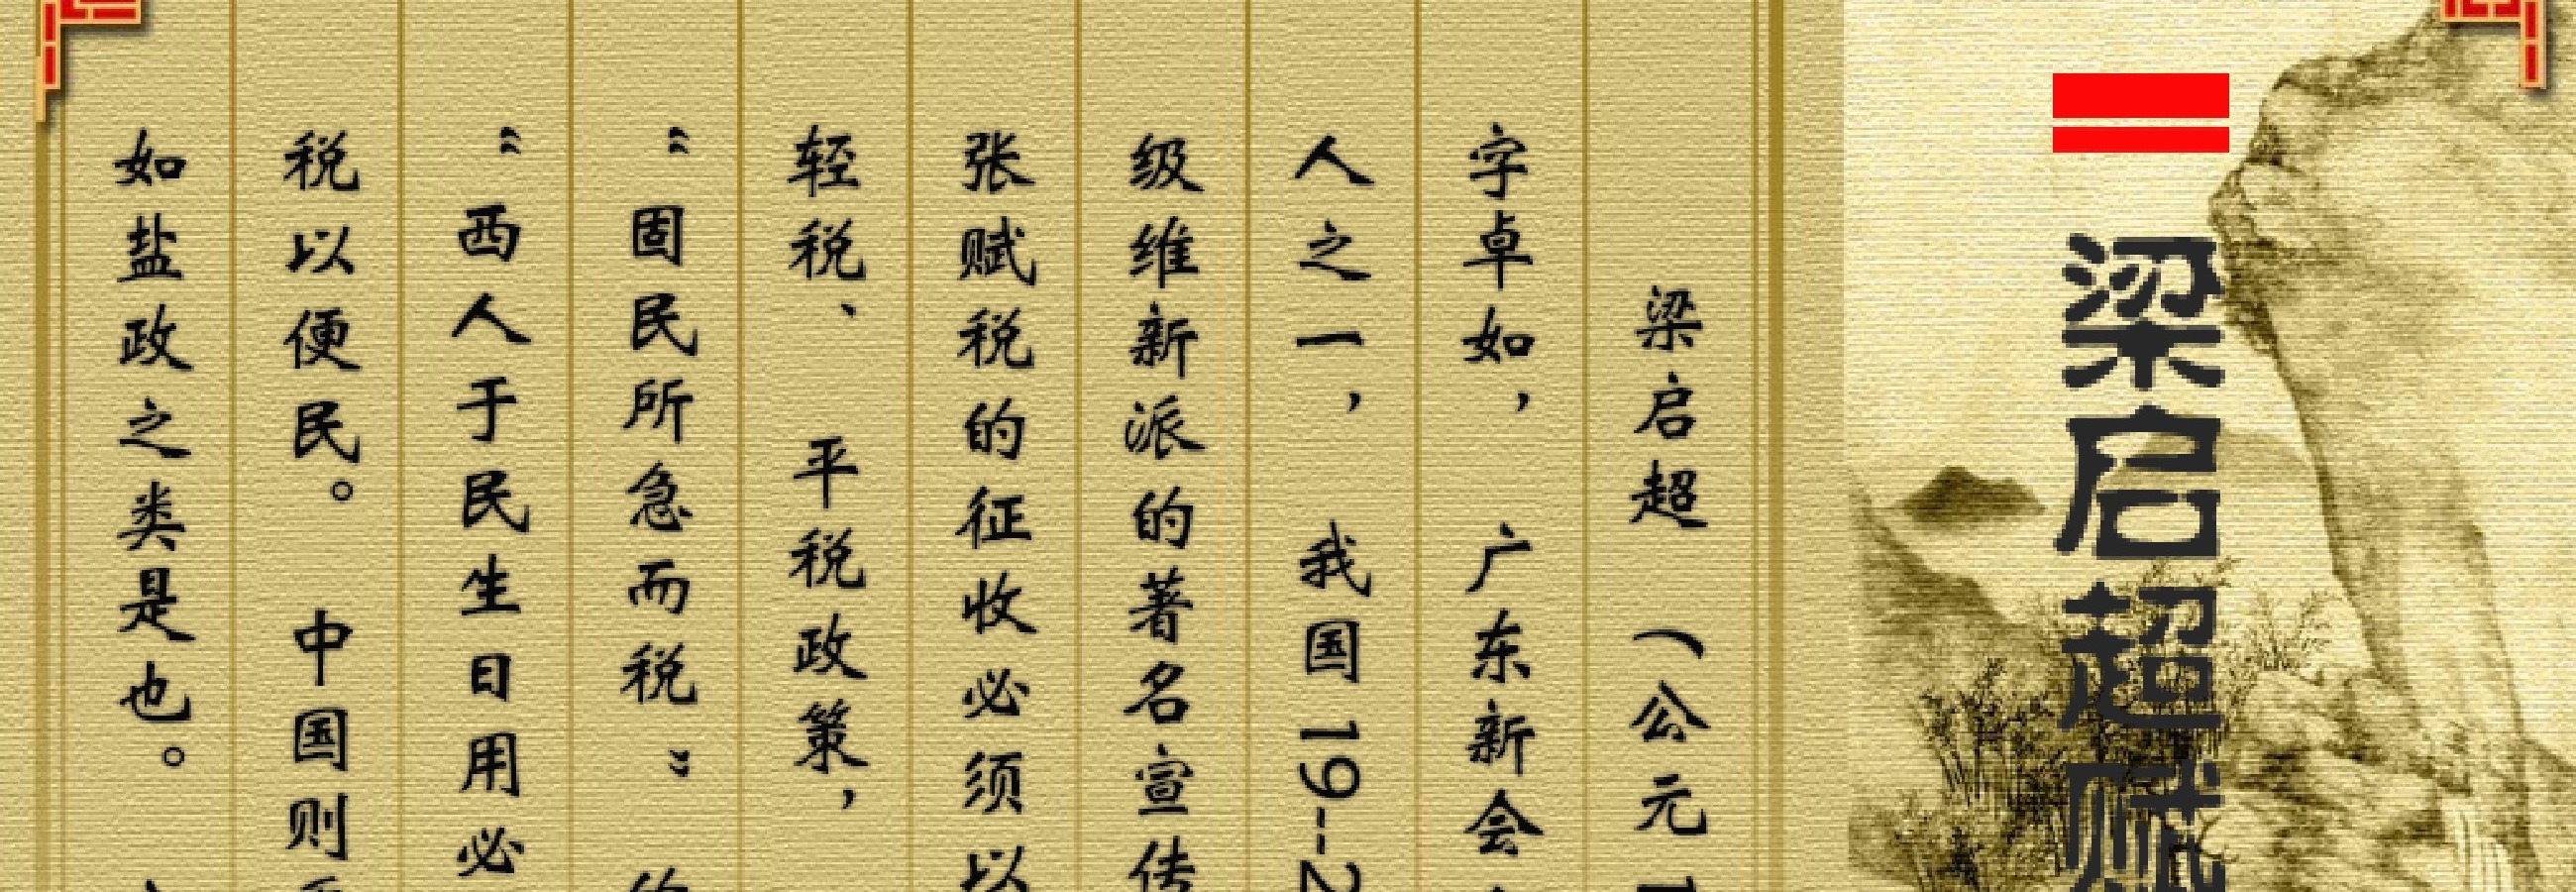 梁启超赋
梁启超（公元1
字卓如，广东新会
人之一，我国19--2
级维新派的著名宣传
张赋税的征收必须以
轻税、平税政策，
“固民所急而税”
“西人于民生日用必
税以便民。中国则
如盐政之类是也。